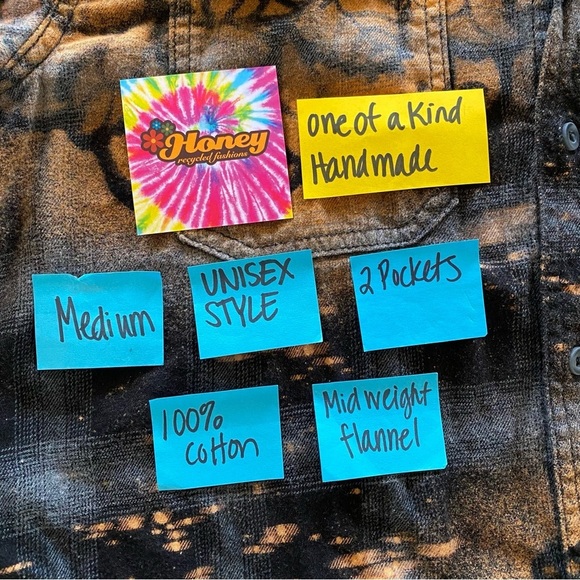 Honey
recycled fashions
one of a kind
Handmade
Medium
UNISEX
STYLE
2 Pockets
100%
cotton
Mid weight
flannel